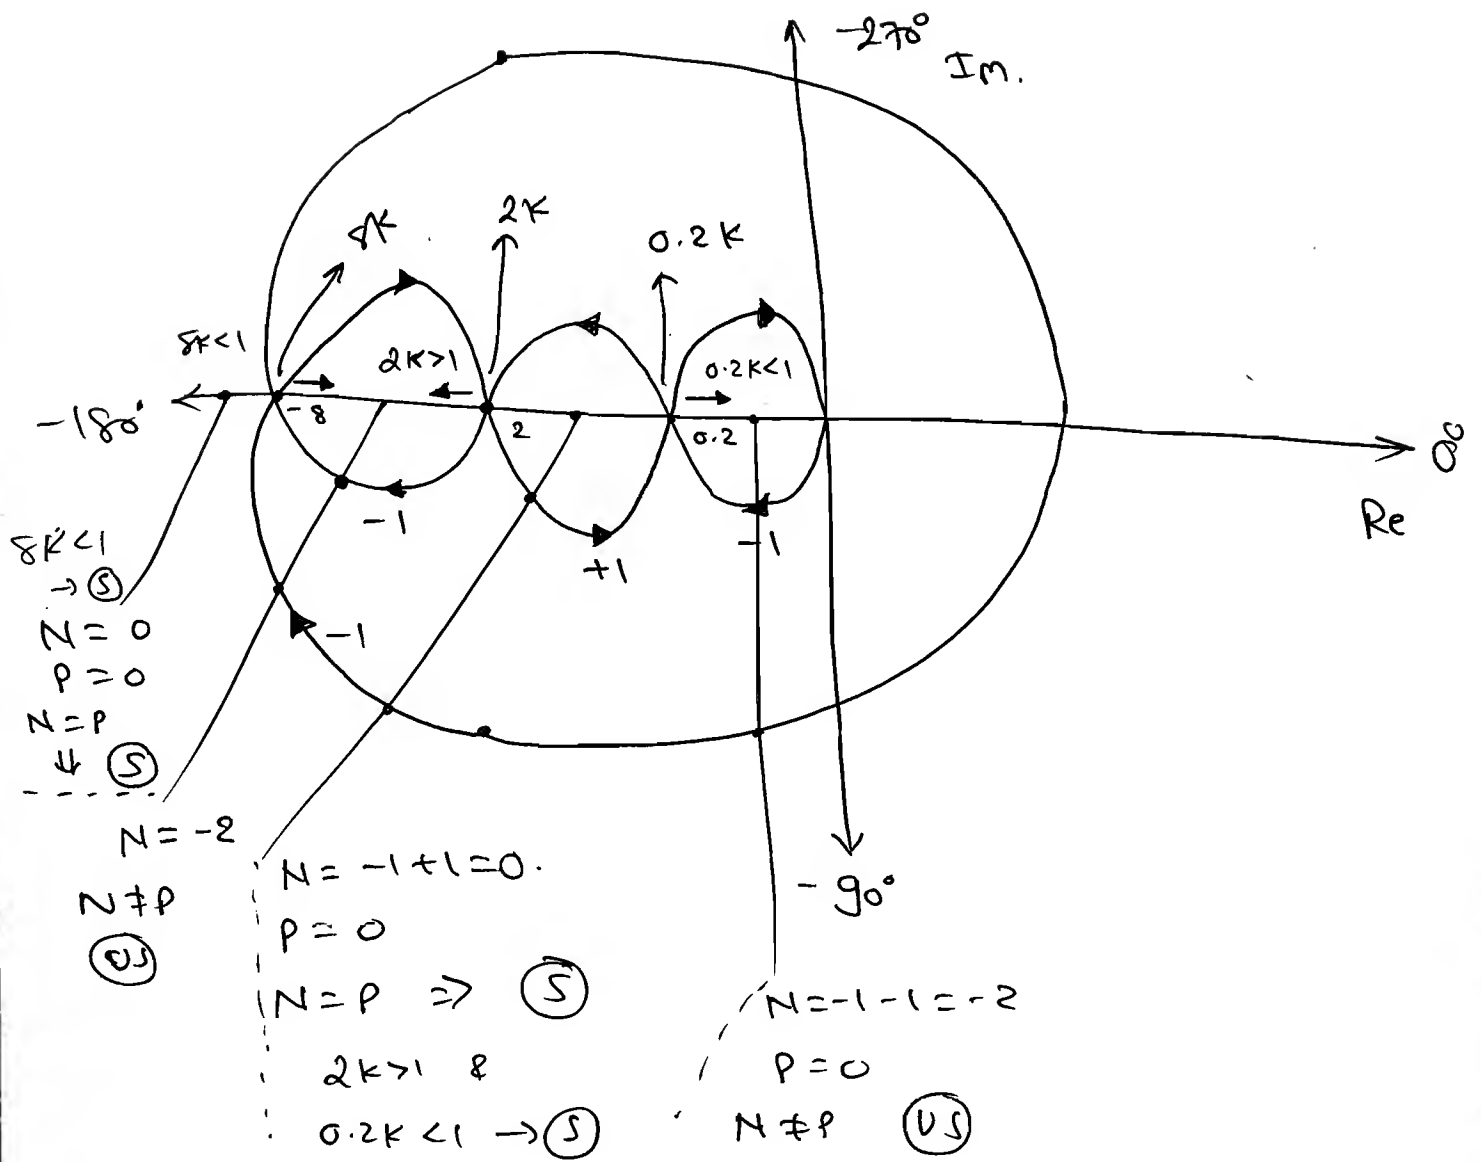 -270°
Im.
8K
2K
0.2K
8K<1
2K>1
0.2K<1
-180°
-8
2
0.2
∞
Re
-1
+1
-1
-1
8K<1
→ (S)
N = 0
P = 0
N = P
⇓ (S)
N = -2
N ≠ P
(US)
N = -1+1=0.
P = 0
N = P ⇒ (S)
2K>1 &
0.2K<1 → (S)
-90°
N=-1-1=-2
P = 0
N ≠ P (US)